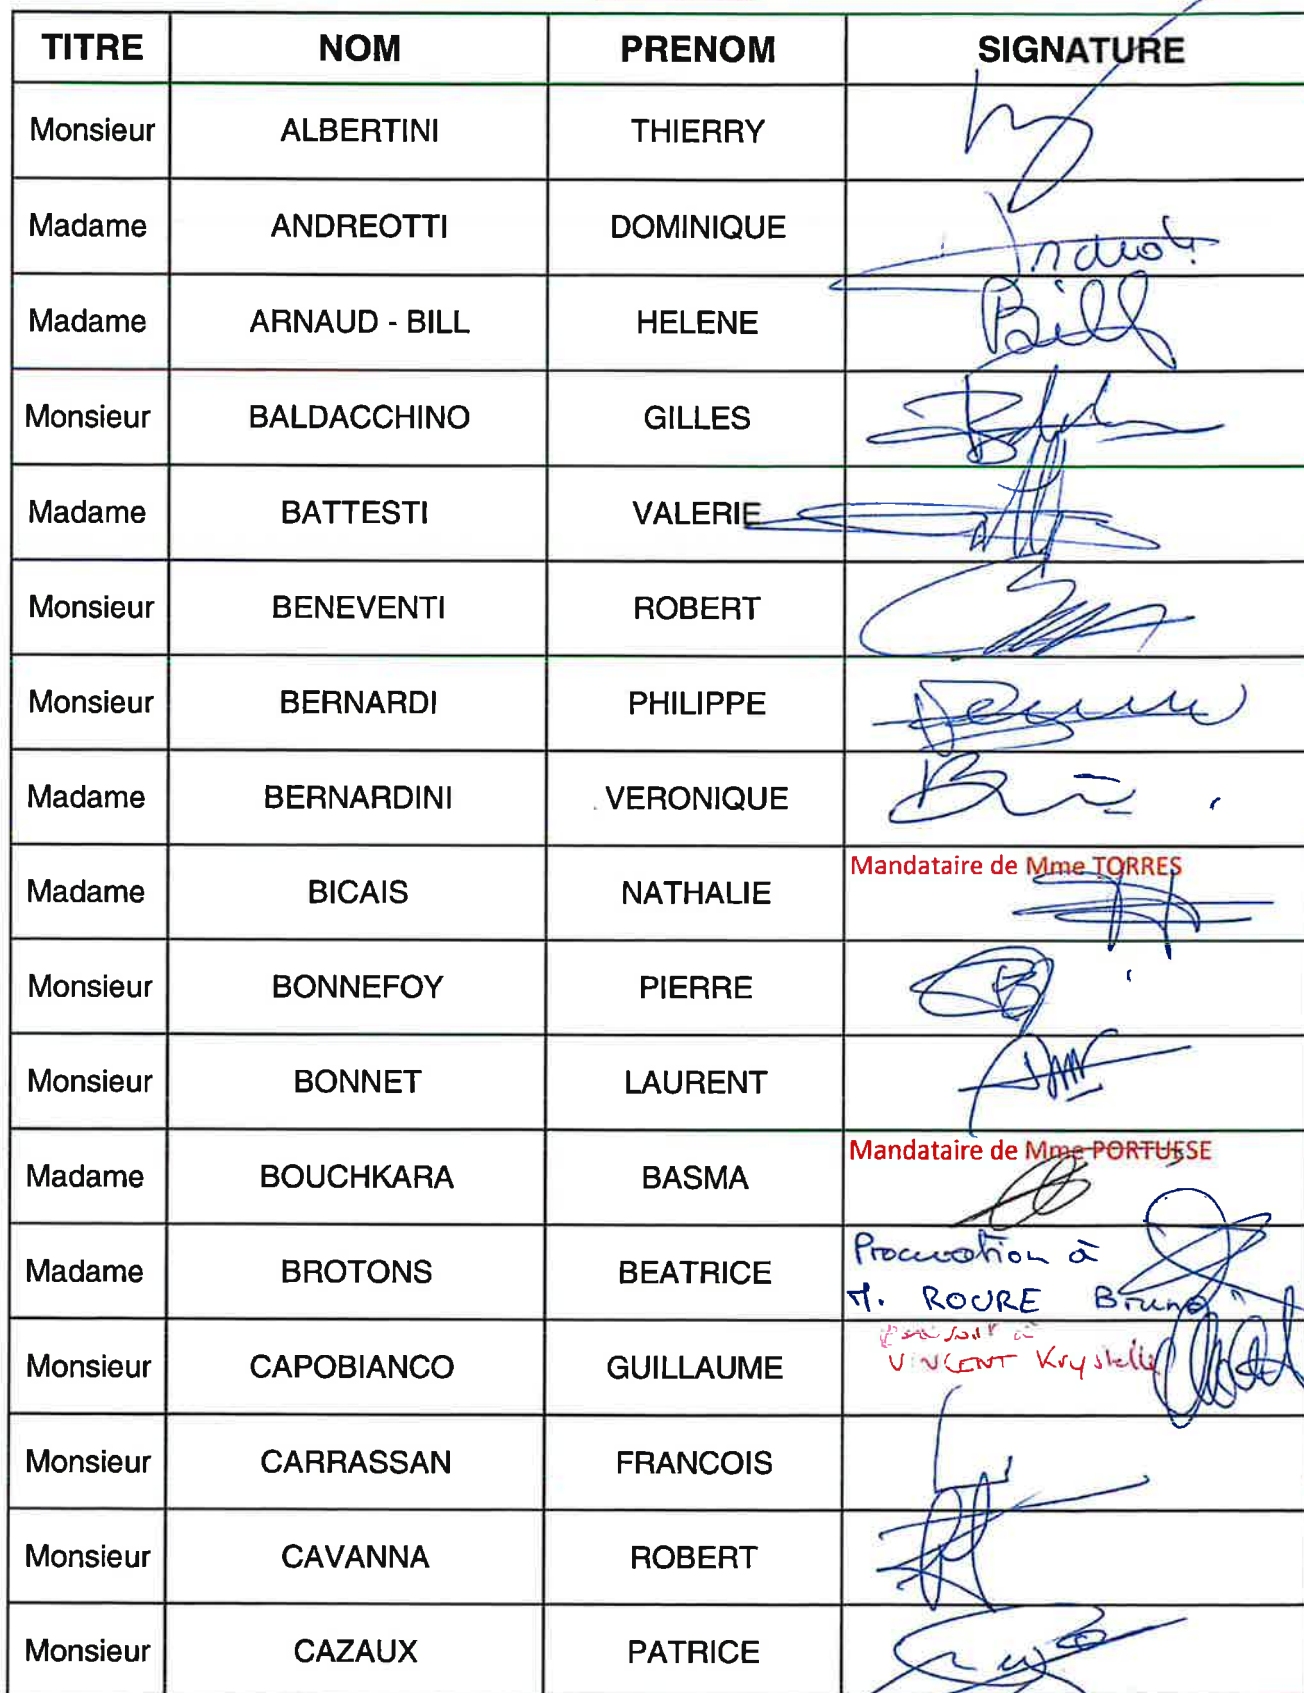 TITRE NOM PRENOM SIGNATURE
Monsieur ALBERTINI THIERRY
Madame ANDREOTTI DOMINIQUE
Madame ARNAUD - BILL HELENE
Bill
Monsieur BALDACCHINO GILLES
Madame BATTESTI VALERIE
Monsieur BENEVENTI ROBERT
Monsieur BERNARDI PHILIPPE
Madame BERNARDINI VERONIQUE
Madame BICAIS NATHALIE
Mandataire de Mme TORRES
Monsieur BONNEFOY PIERRE
Monsieur BONNET LAURENT
Madame BOUCHKARA BASMA
Mandataire de Mme PORTUESE
Madame BROTONS BEATRICE
Procuration à
M. ROURE Bruno
Monsieur CAPOBIANCO GUILLAUME
VINCENT Krystelle
Monsieur CARRASSAN FRANCOIS
Monsieur CAVANNA ROBERT
Monsieur CAZAUX PATRICE